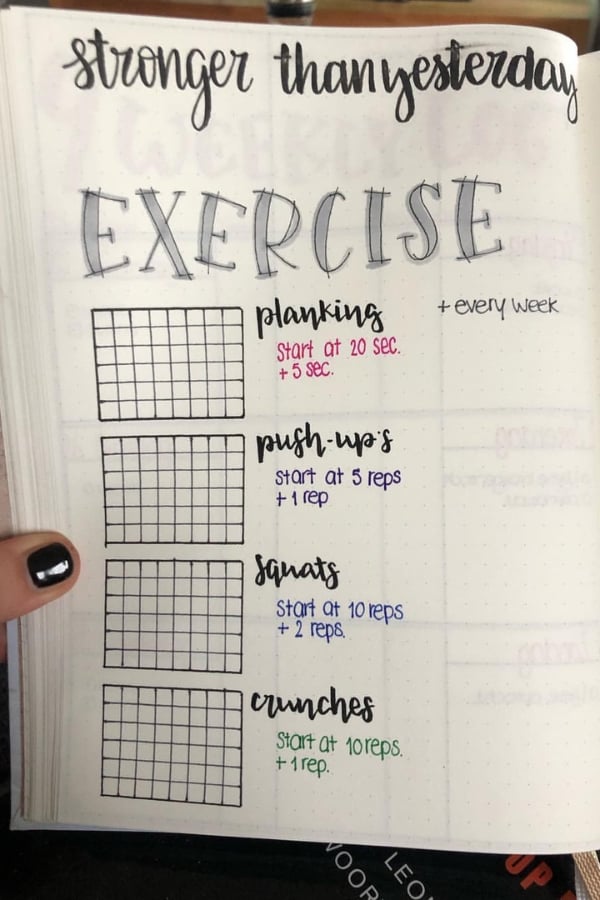 stronger than yesterday
EXERCISE
planking
+ every week
Start at 20 sec.
+ 5 sec.
push-up's
start at 5 reps
+ 1 rep
Squats
Start at 10 reps
+ 2 reps.
crunches
Start at 10 reps.
+ 1 rep.
UP